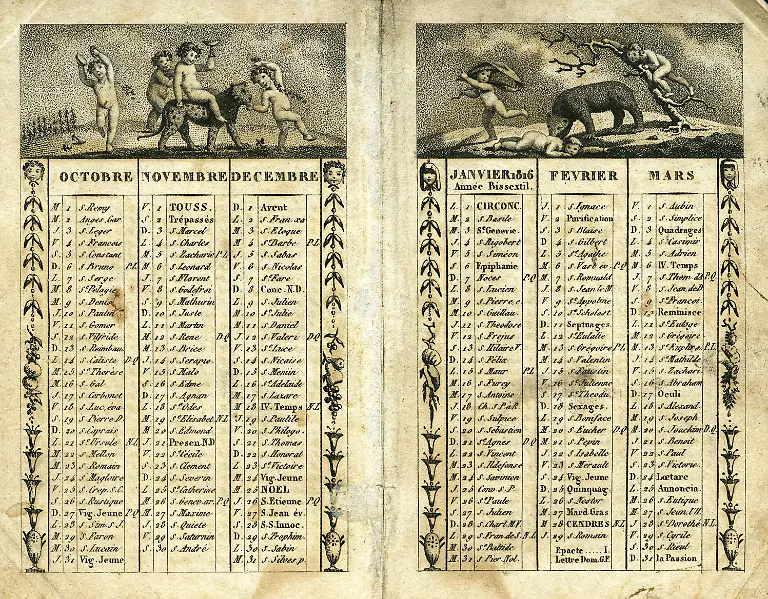 OCTOBRE
M. 1 S. Remy
M. 2 Anges Gar.
J. 3 S. Leger
V. 4 S. Francois
S. 5 S. Constant
D. 6 S. Bruno P.L
L. 7 S. Serge
M. 8 Ste Pelagie
M. 9 S. Denis
J. 10 S. Paulin
V. 11 S. Gomer
S. 12 S. Vilfride
D. 13 S.
L. 14 S. Caliste D.Q
M. 15 Ste Thérèse
M. 16 S. Gal
J. 17 S. Cerbonet
V. 18 S. Luc, éva
S. 19 S. Pierre D.
D. 20 S. Caprais
L. 21 Ste Ursule N.L
M. 22 S. Mellon
M. 23 S. Romain
J. 24 S. Magloire
V. 25 S. Crep. S.C.
S. 26 S. Rustique
D. 27 Vig. Jeune P.Q
L. 28 S. Sim. S.J.
M. 29 S. Faron
M. 30 S. Lucain
J. 31 Vig. Jeune
NOVEMBRE
V. 1 TOUSS.
S. 2 Trépassés
D. 3 S. Marcel
L. 4 S. Charles
M. 5 S. Zacharie P.L
M. 6 S. Leonard
J. 7 S. Florent
V. 8 S. Godefroi
S. 9 S. Mathurin
D. 10 S. Juste
L. 11 S. Martin
M. 12 S. Rene D.Q
M. 13 S. Brice
J. 14 S. Serapio
V. 15 S. Malo
S. 16 S. Edme
D. 17 S. Agnan
L. 18 Ste Udes
M. 19 Ste Elisabet N.L
M. 20 S. Edmond
J. 21 Presen. N.D
V. 22 Ste Cécile
S. 23 S. Clement
D. 24 S. Severin
L. 25 Ste Catherine
M. 26 S. Genev. ar. P.Q
M. 27 S. Maxime
J. 28 S. Quiete
V. 29 S. Saturnin
S. 30 S. André
DECEMBRE
D. 1 Avent
L. 2 S. Fran. xa
M. 3 S. Eloque
M. 4 Ste Barbe P.L
J. 5 S. Sabas
V. 6 S. Nicolas
S. 7 Ste Fare
D. 8 Conc. N.D.
L. 9 S. Julien
M. 10 Ste Julie
M. 11 S. Daniel
J. 12 S. Valeri D.Q
V. 13 Ste Luce
S. 14 S. Nicaise
D. 15 S. Memin
L. 16 Ste Adelaide
M. 17 S. Lazare
M. 18 IV. Temps N.L
J. 19 S. Paulile
V. 20 S. Philogo.
S. 21 S. Thomas
D. 22 S. Honorat
L. 23 Ste Victoire
M. 24 Vig. Jeune
M. 25 NOEL
J. 26 S. Etienne P.Q
V. 27 S. Jean év.
S. 28 S.S. Innoc.
D. 29 S. Trophim.
L. 30 S. Sabin
M. 31 S. Silves. p.
JANVIER 1816
Année Bissextil.
L. 1 CIRCONC.
M. 2 S. Basile
M. 3 Ste Genevie.
J. 4 S. Rigobert
V. 5 S. Siméon
S. 6 Epiphanie
D. 7 Noces P.Q
L. 8 S. Lucien
M. 9 S. Pierre, é.
M. 10 S. Guillau.
J. 11 S. Theodose
V. 12 S. Frejus
S. 13 S. Hilaire
D. 14 S. Félix
L. 15 S. Maur P.L
M. 16 S. Furcy
M. 17 S. Antoine
J. 18 Ch. S.P. à R.
V. 19 S. Sulpice
S. 20 S. Sebastien
D. 21 Ste Agnès D.Q
L. 22 S. Vincent
M. 23 S. Ildefonse
M. 24 S. Savinien
J. 25 Conv. S. P.
V. 26 Ste Paule
S. 27 S. Julien
D. 28 S. Charl. M.
L. 29 S. Fran. de S. N.L
M. 30 Ste Batilde
M. 31 S. Pier. Nol.
FEVRIER
J. 1 S. Ignace
V. 2 Purification
S. 3 S. Blaise
D. 4 S. Gilbert
L. 5 Ste Agathe
M. 6 S. Vast év. P.Q
M. 7 S. Romuald
J. 8 S. Jean de M.
V. 9 Ste Appoline
S. 10 Ste Scholast.
D. 11 Septuages.
L. 12 Ste Eulalie
M. 13 S. Grégoire P.L
M. 14 S. Valentin
J. 15 S. Faustin
V. 16 Ste Julienne
S. 17 S. Théodu.
D. 18 Sexages.
L. 19 S. Boniface
M. 20 S. Eucher D.Q
M. 21 S. Pepin
J. 22 S. Isabelle
V. 23 S. Merault
S. 24 Vig. Jeune
D. 25 Quinquag.
L. 26 S. Nestor
M. 27 Mard. Gras
M. 28 CENDRES N.L
J. 29 S. Romain
Epacte ..... I.
Lettre Dom. G.F.
MARS
V. 1 S. Aubin
S. 2 S. Simplice
D. 3 Quadrages
L. 4 S. Casimir
M. 5 S. Adrien
M. 6 IV. Temps
J. 7 S. Thom. d'A P.Q
V. 8 S. Jean de D
S. 9 Ste Frances.
D. 10 Reminisce
L. 11 S. Euloge
M. 12 S. Grégoire
M. 13 Ste Euphra. P.L
J. 14 Ste Mathilde
V. 15 S. Zachari.
S. 16 S. Abraham
D. 17 Oculi
L. 18 S. Alexand.
M. 19 S. Joseph
M. 20 S. Joachim D.Q
J. 21 S. Benoit
V. 22 S. Paul
S. 23 S. Victorie.
D. 24 Lœtare
L. 25 Annoncia
M. 26 S. Eutique
M. 27 S. Jean l'H.
J. 28 Ste Dorothé N.L
V. 29 S. Cyrile
S. 30 S. Rieul
D. 31 la Passion